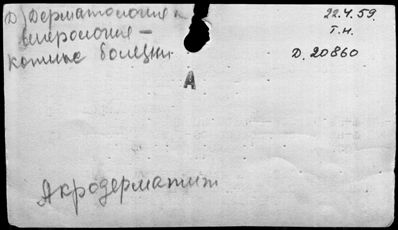 Д) Дерматология и
венерология –
кожные болезни.
22.4.59.
Т.н.
Д. 20860
А
Акродерматит